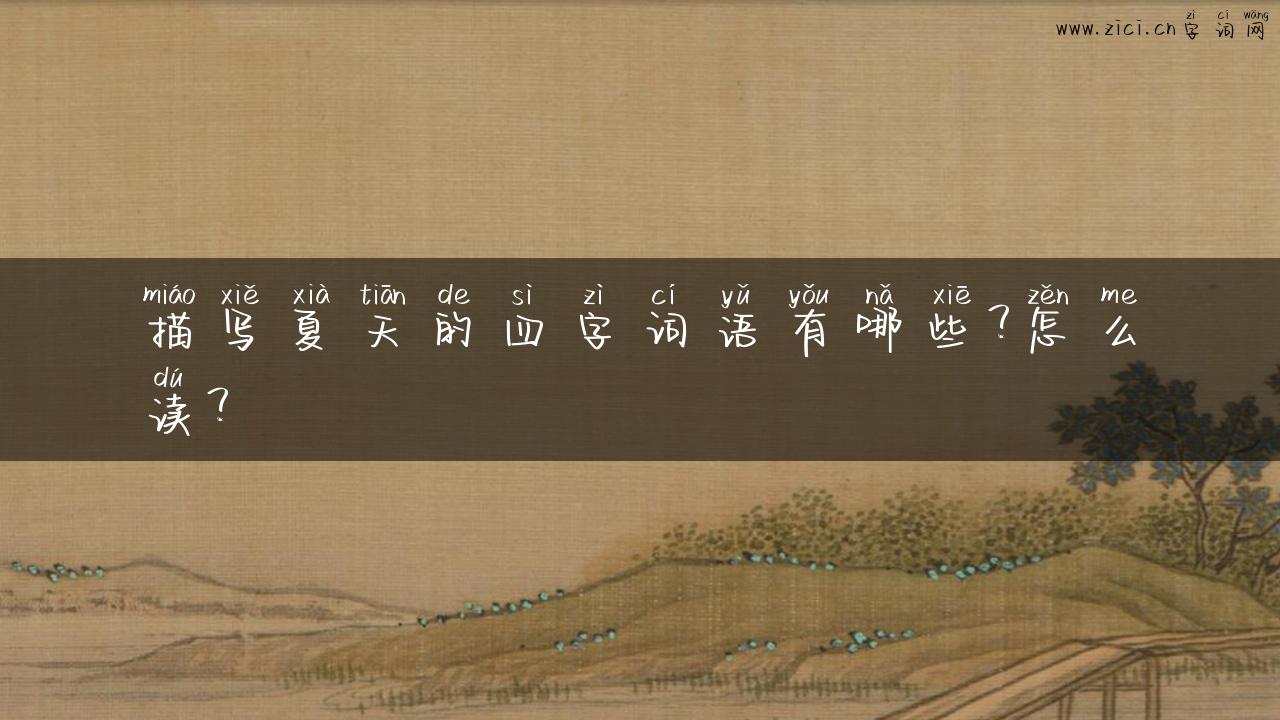 zì cí wǎng
www.zici.cn字词网
miáo xiě xià tiān de sì zì cí yǔ yǒu nǎ xiē zěn me
描写夏天的四字词语有哪些？怎么
dú
读？